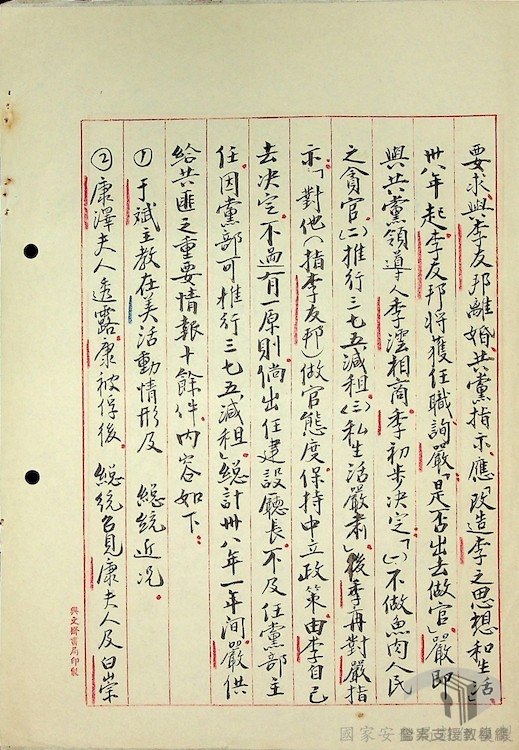 要求與李友邦離婚、共黨指示、應改造李之思想和生活、
卅八年起李友邦將獲任職、詢嚴「是否出去做官」嚴即
與共黨領導人李澐相商、李初步決定「㈠不做魚肉人民
之貪官㈡推行三七五減租㈢私生活嚴肅」後李再對嚴指
示「對他(指李友邦)做官態度、保持中立政策、由李自己
去決定、不過有一原則倘出任建設廳長、不及任黨部主
任、因黨部可推行三七五減租」總計卅八年一年間、嚴供
給共匪之重要情報十餘件內容如下、
①于斌主教在美活動情形及 總統近況、
②康澤夫人透露、康被俘後 總統召見康夫人及白崇
興文齋書局印製
國家安
檔案支援教學網
製